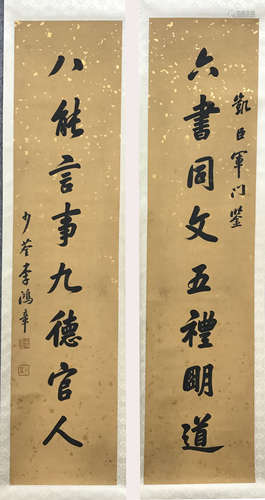 凱臣軍門鑒
六書同文五禮明道
八能言事九德官人
少荃李鴻章